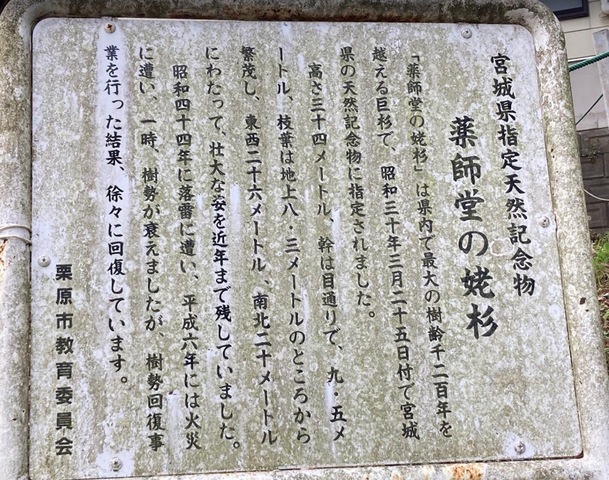 宮城県指定天然記念物
薬師堂の姥杉
「薬師堂の姥杉」は県内で最大の樹齢千二百年を
越える巨杉で、昭和三十年三月二十五日付で宮城
県の天然記念物に指定されました。
高さ三十四メートル、幹は目通りで、九・五メ
ートル、枝葉は地上八・三メートルのところから
繁茂し、東西二十六メートル、南北二十メートル
にわたって、壮大な姿を近年まで残していました。
昭和四十四年に落雷に遭い、平成六年には火災
に遭い、一時、樹勢が衰えましたが、樹勢回復事
業を行った結果、徐々に回復しています。
栗原市教育委員会